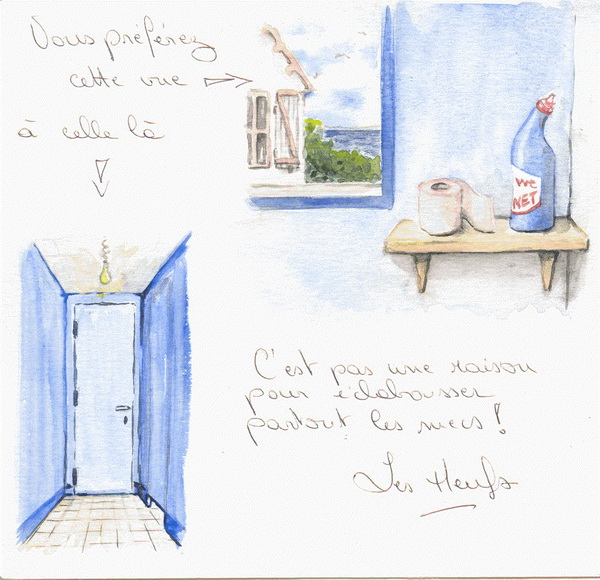 Vous préférez
cette vue
à celle là
WC
NET
C'est pas une raison
pour éclabousser
partout les mecs !
Les Meufs